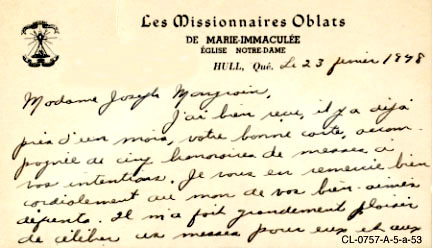 Les Missionnaires Oblats
DE MARIE-IMMACULÉE
ÉGLISE NOTRE-DAME
HULL, Qué. Le 23 janvier 1948
Madame Joseph
J'ai bien reçu, il y a déjà
près d'un mois, votre bonne carte, accom-
pagnée de cinq honoraires de messes à
vos intentions. Je vous en remercie bien
cordialement au nom de vos bien-aimés
défunts. Il m'a fait grandement plaisir
de célébrer ces messes pour eux et
CL-0757-A-5-a-53